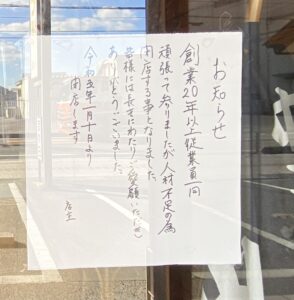 お知らせ
創業20年以上従業員一同
頑張って参りましたが人材不足の為
閉店する事となりました
皆様には長きにわたりご愛顧いただき
ありがとうございました
令和五年一月十日より
閉店します
店主